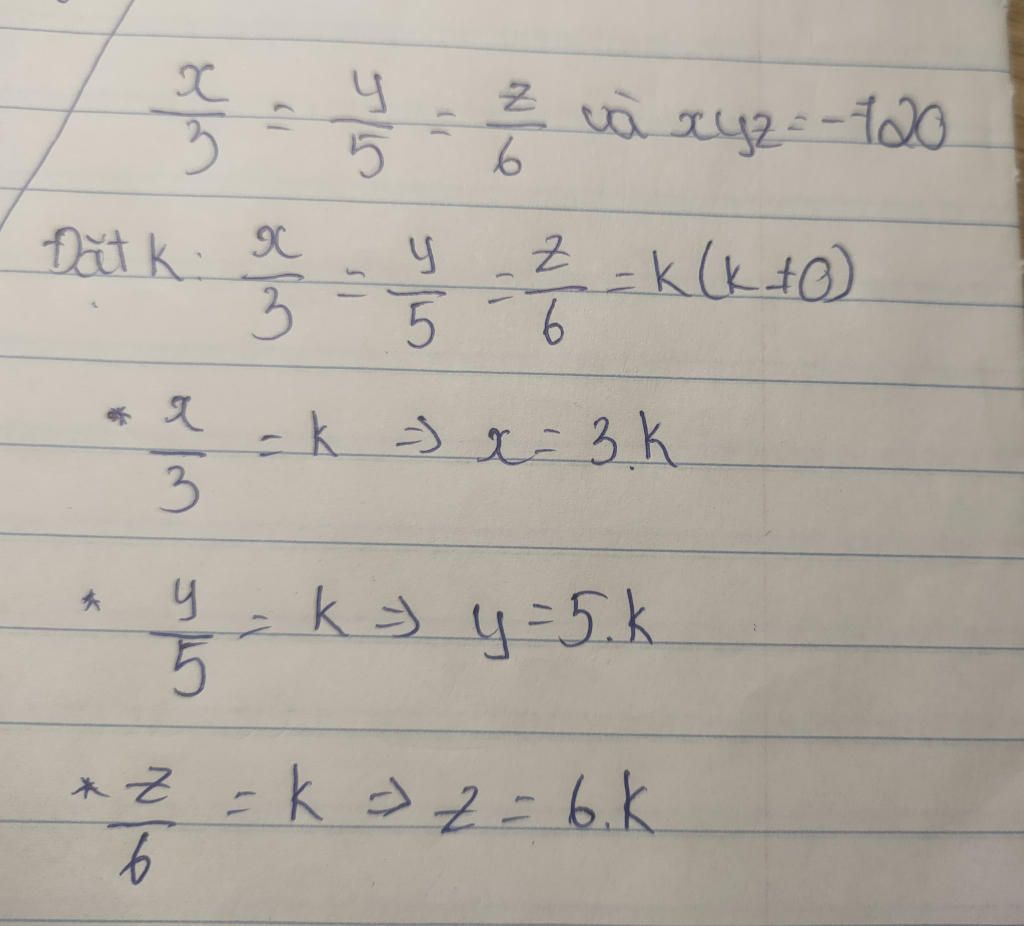 x/3 = y/5 = z/6 và xyz = -720
Đặt k: x/3 = y/5 = z/6 = k (k ≠ 0)
* x/3 = k => x = 3.k
* y/5 = k => y = 5.k
* z/6 = k => z = 6.k